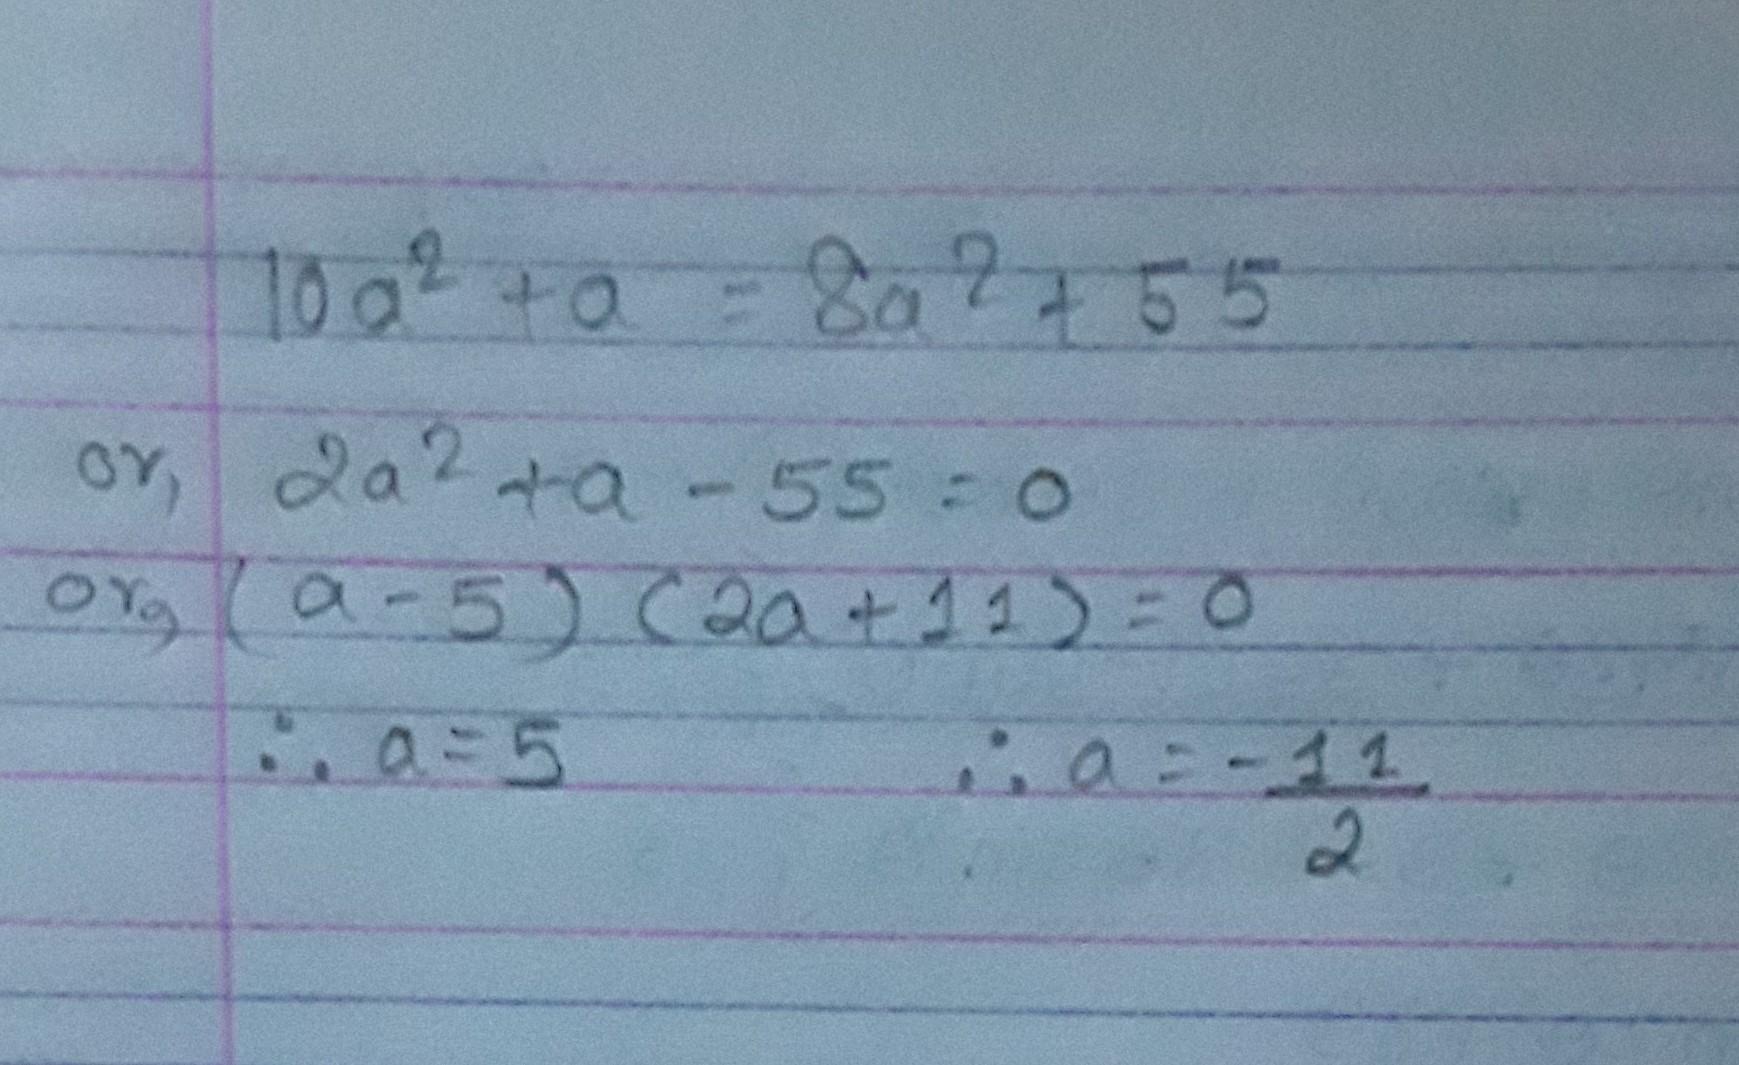 10a² + a = 8a² + 55
or, 2a² + a - 55 = 0
or, (a - 5) (2a + 11) = 0
∴ a = 5 ∴ a = -11/2